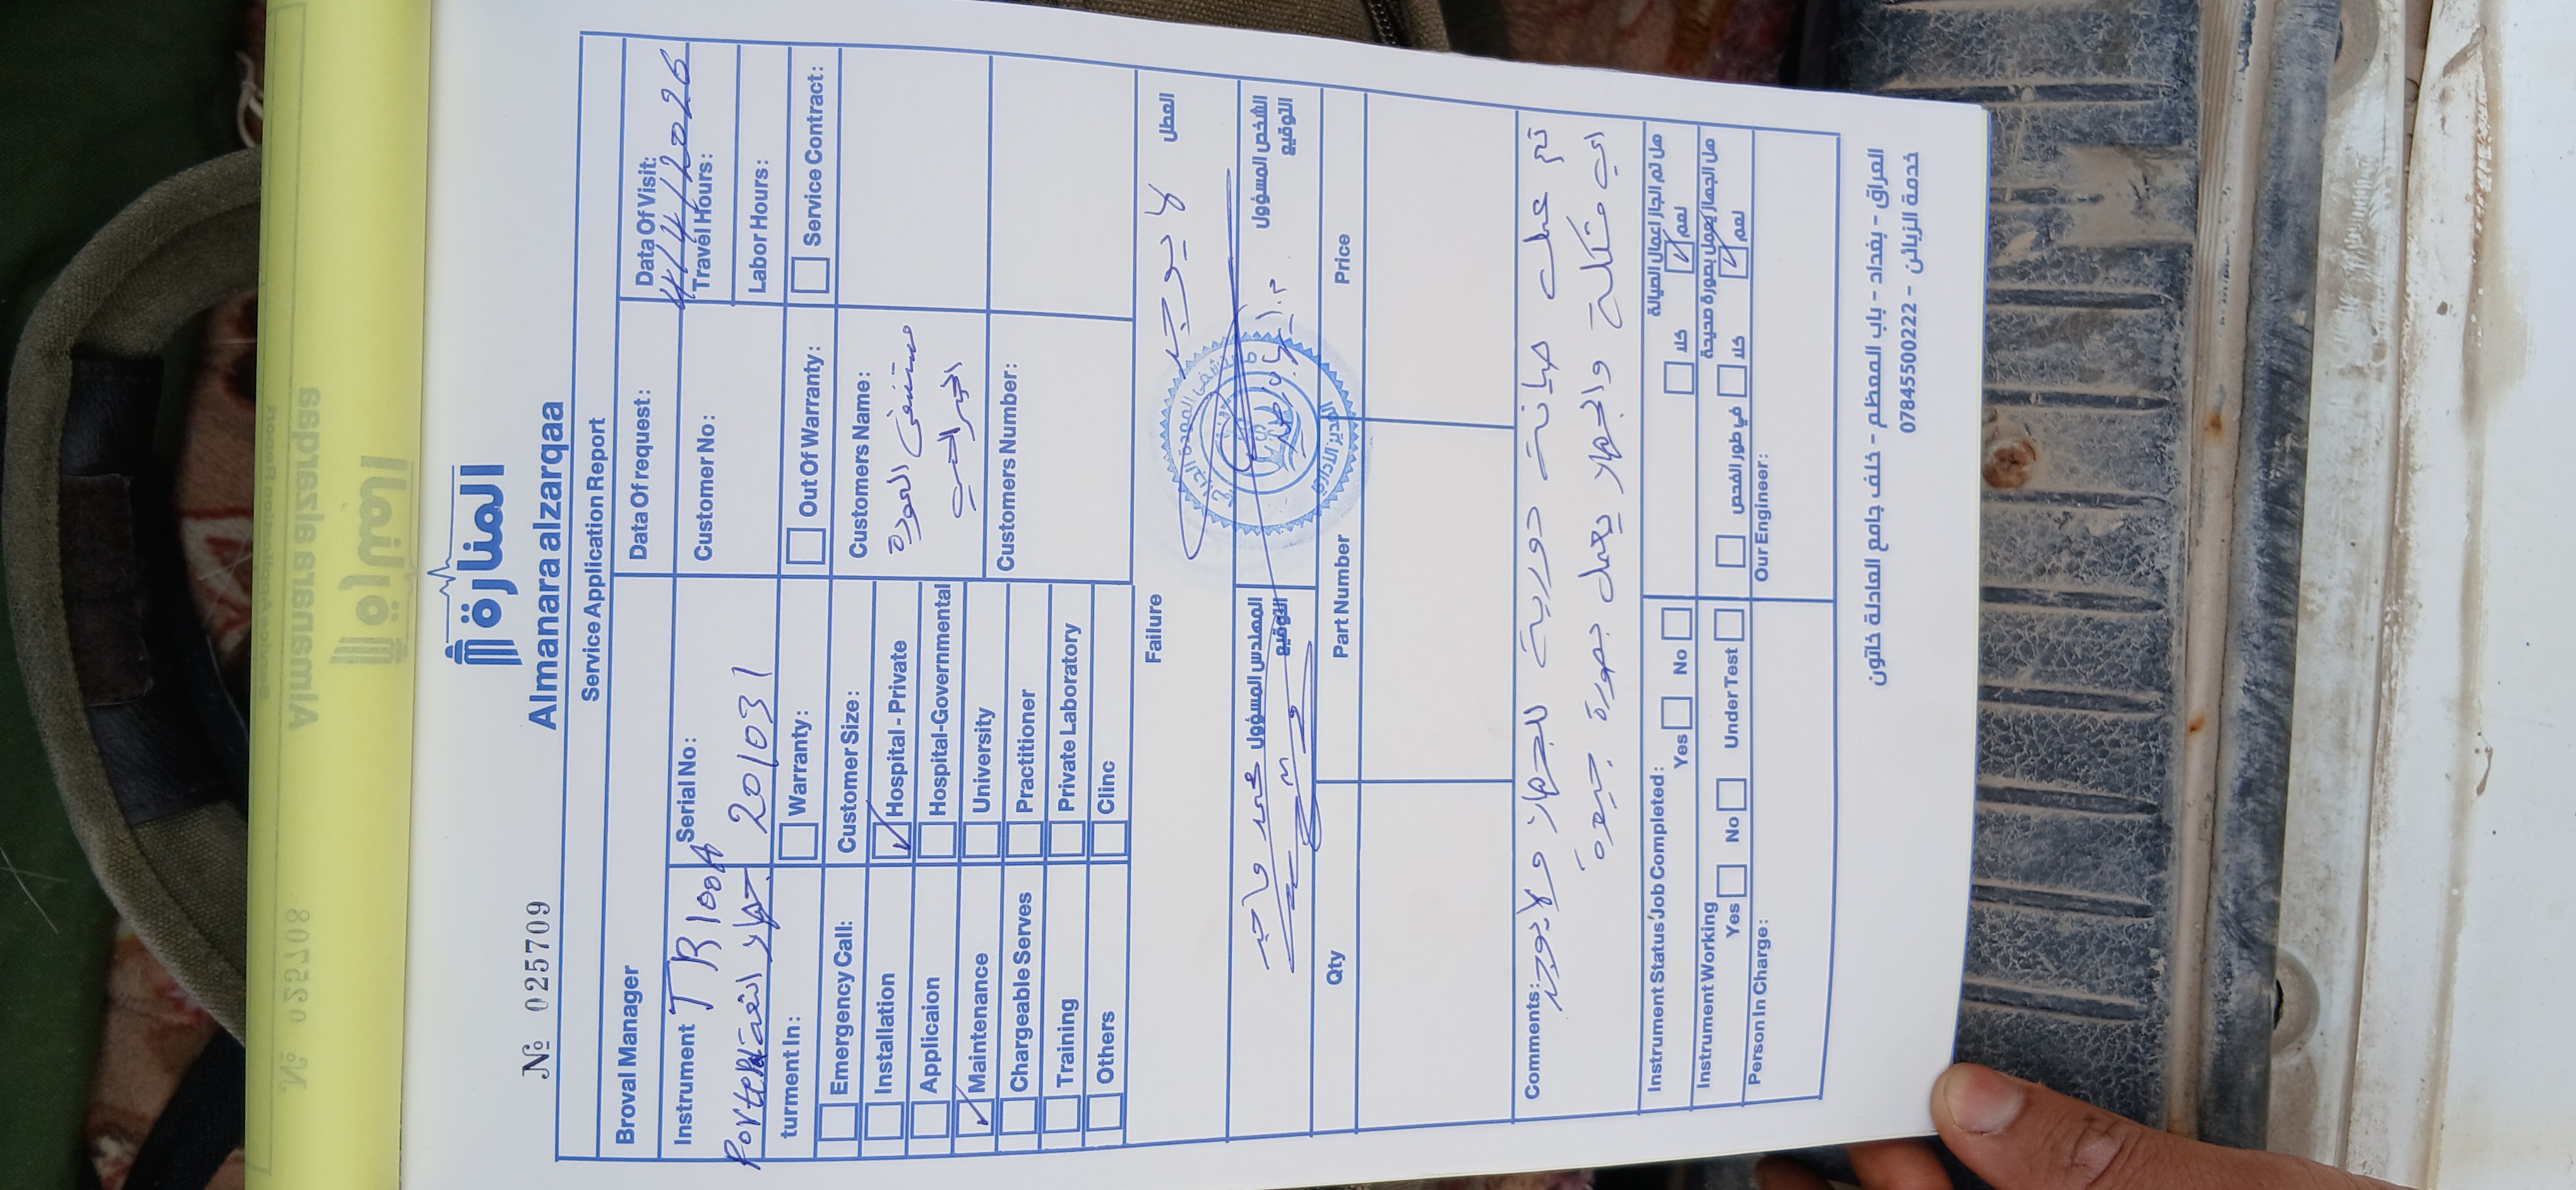 № 025709
المنارة
Almanara alzarqaa
Service Application Report
Broval Manager
Data Of request:
Data Of Visit:
4/4/2026
Instrument TR 100A
Serial No:
Customer No:
Travel Hours:
Portable جهاز اشعة
201031
Labor Hours:
turment In:
Warranty:
Out Of Warranty:
Service Contract:
Emergency Call:
Customer Size:
Customers Name:
Installation
Hospital - Private
مستشفى العودة
Applicaion
Hospital-Governmental
Maintenance
University
Customers Number:
Chargeable Serves
Practitioner
Training
Private Laboratory
Others
Clinc
Failure
العطل
لا يوجد
المهندس المسؤول
الشخص المسؤول
التوقيع
التوقيع
محمد
Qty
Part Number
Price
Comments:
تم عمل صيانة دورية للجهاز ولا يوجد
اي مشكلة والجهاز يعمل بصورة جيدة
Instrument Status'Job Completed:
Yes No
هل تم انجاز اعمال الصيانة
كلا نعم
Instrument Working
Yes No Under Test
هل الجهاز يعمل بصورة صحيحة
في طور الفحص كلا نعم
Person In Charge:
Our Engineer:
العراق - بغداد - باب المعظم - خلف جامع العادلة خاتون
خدمة الزبائن - 07845500222
№ 025708
المنارة
Almanara alzarqaa